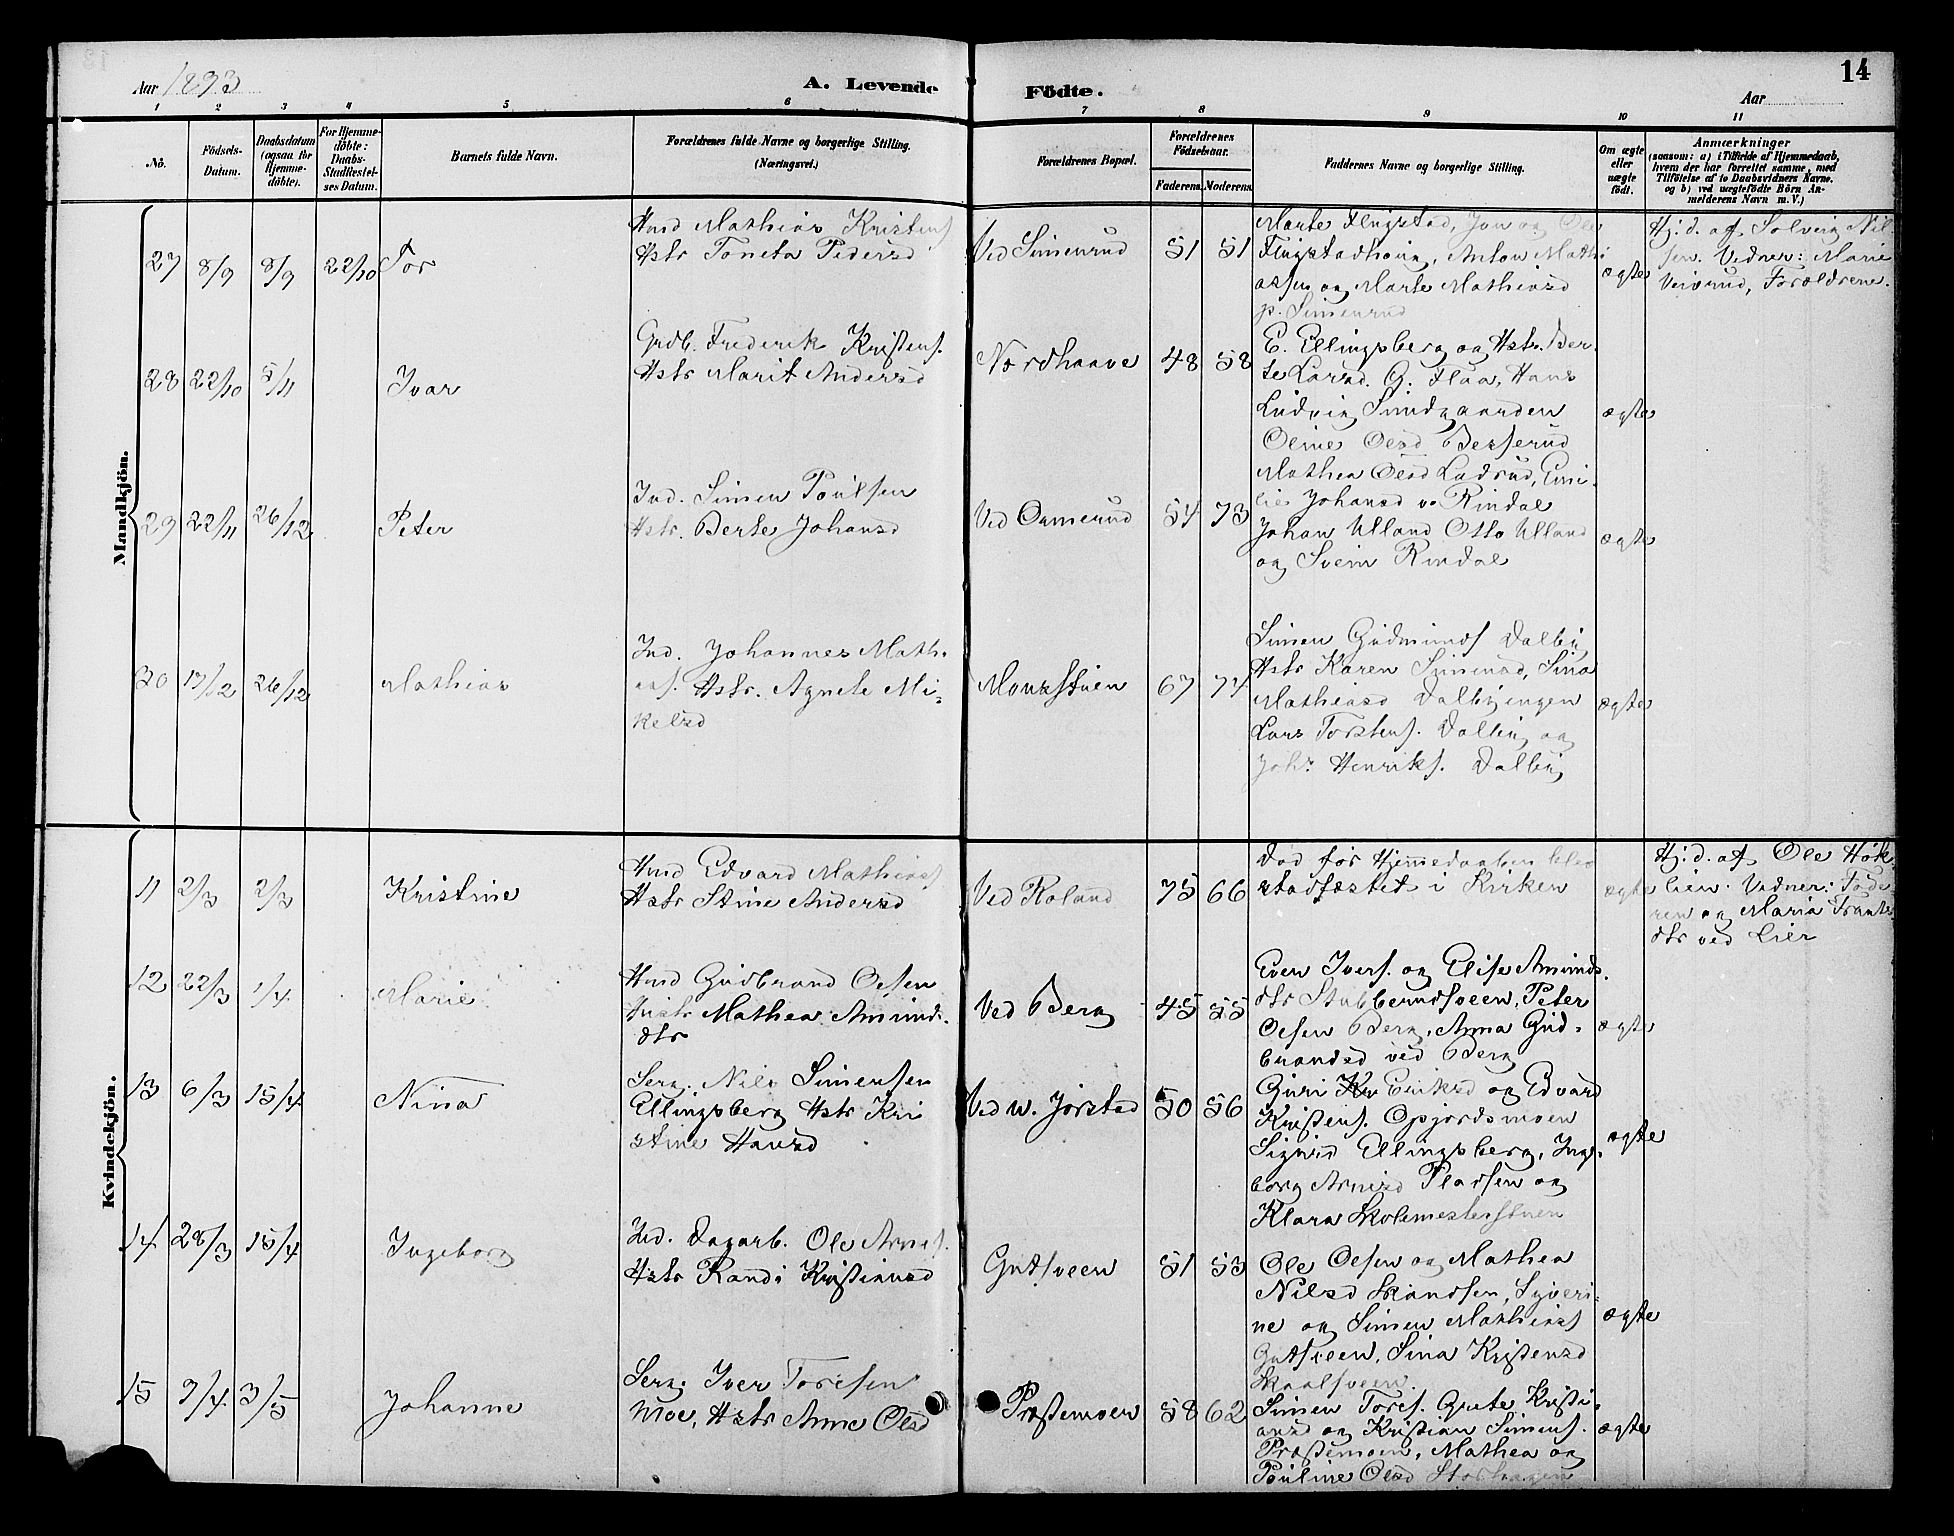 Aar 1893 A. Levende Fødte. Aar 14
1 2 3 4 5 6 7 8 9 10 11
No.
Fødsels-Datum.
Daabsdatum (ogsaa for Hjemme-døbte).
For Hjemme-døbte: Daabs-Stadfæstel-ses Datum.
Barnets fulde Navn.
Forældrenes fulde Navne og borgerlige Stilling. (Næringsvei.)
Forældrenes Bopæl.
Forældrenes Fødselsaar.
Faderens. Moderens.
Faddernes Navne og borgerlige Stilling.
Om ægte eller uægte født.
Anmærkninger
(saasom: a) i Tilfælde af Hjemmedaab,
hvem der har forrettet samme, med
Tilføielse af to Daabsvidners Navne,
og b) ved uægtefødte Børn An-
melderens Navn m. V.)
Mandkjøn.
27 8/9 8/9 22/10 Tor
Hmd Mathias Kristens
Hstr Toneta Pedersd
Ved Simenrud 51 51
Marte Flugstad, Jon og Ole
Flugstadhoug, Anton Mathi
assen og Marte Mathiasd
p. Simenrud
ægte
Hj. d. af Solveig Nil-
sen. Vedner: Marie
Veisrud, Forældrene.
28 22/10 5/11 Ivar
Grdb. Frederik Kristens.
Hstr Marit Andersd
Nordhaave 48 58
E. Ellingsberg og Hstr. Ber-
te Larsd. G. Flaa, Hans
Ludvig Sundgaarden
Oline Olsd Besserud
ægte
29 22/11 26/12 Peter
Ind. Simen Poulsen
Hstr. Berte Johansd
Ved Ommerud 54 73
Mathea Olsd Ladsrud, Emi-
lie Johansd v. Rindal
Johan Ulland Otto Ulland
og Svein Rindal
ægte
30 13/12 26/12 Mathias
Ind. Johannes Math-
ias. Hstr. Agnete Mi-
kelsd
Monsstuen 67 74
Simen Gudmunds Dalby
Hstr Karen Simensd, Sina
Mathiasd Dalbyengen
Lars Torstens. Dalby og
Johs Henriks. Dalby
ægte
Kvindekjøn.
11 2/3 2/3 Kristine
Hmd Edvard Mathias
Hstr Stine Andersd
Ved Roland 75 66
Død før Hjemmedaaben blev
stadfæstet i Kirken
ægte
Hj. d. af Ole Høk-
lien. Vedner: Fade-
ren og Maria Frants-
dtr ved Lier
12 22/3 1/4 Marie
Hmd Gudbrand Olsen
Hustr Mathea Amunds-
dtr
Ved Berg 45 55
Even Ivers. og Elise Amunds-
dtr Stubberudsveen, Peter
Olsen Berg, Anna Gud-
brandsd ved Berg
ægte
13 6/3 15/4 Nina
Serg. Nils Simensen
Ellingsberg Hstr Kri
stine Hansd
Ved n. Jørstad 50 56
Guri Eriksd og Edvard
Kristens. Opjordsmoen
Sigrid Ellingsberg, Inge-
borg Arnesd Pladsen og
Klara Skolemesterstuen
ægte
14 28/3 15/4 Ingeborg
Ind. Dagarb. Ole Arnes.
Hstr Randi Kristiansd
Gutsveen 51 53
Ole Olsen og Mathea
Nilsd Skandsen, Syveri-
ne og Simen Mathias
Gutsveen, Sina Kristensd
Skaalsveen.
ægte
15 9/4 3/5 Johanne
Serg. Iver Toresen
Moe, Hstr Anne Olsd
Præstemoen 58 62
Simen Tores. Grete Kristi-
ansd og Kristian Simens.
Præstemoen, Mathea og
Pauline Olsd Storhagen
ægte